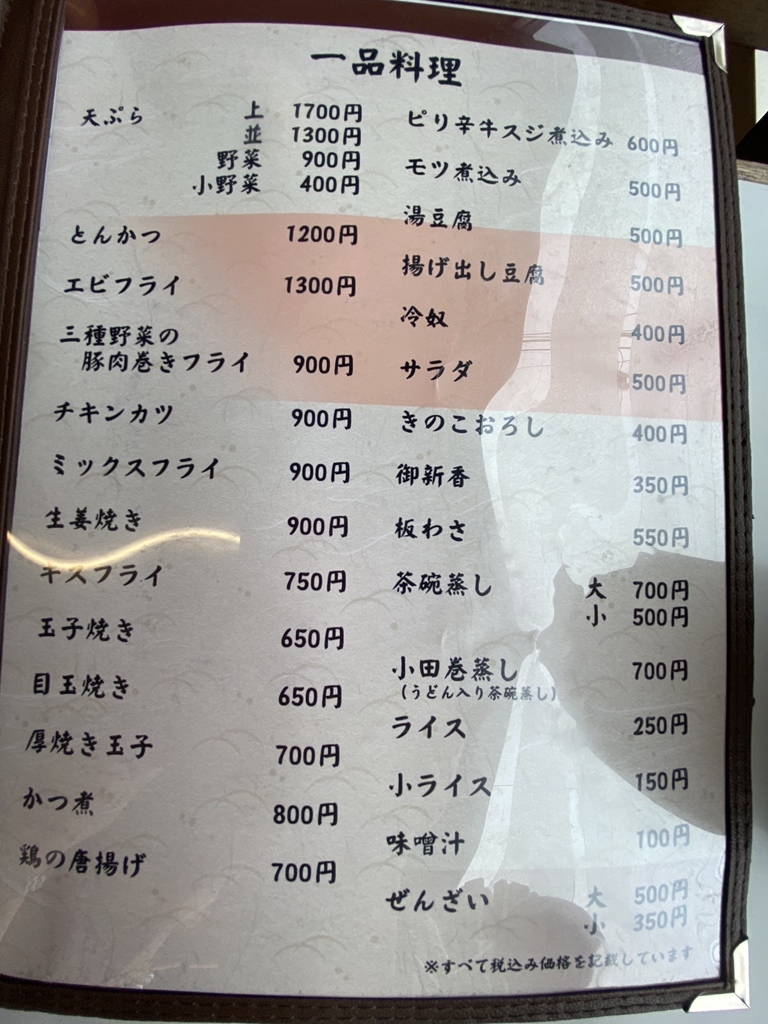 一品料理
天ぷら 上 1700円
並 1300円
野菜 900円
小野菜 400円
とんかつ 1200円
エビフライ 1300円
三種野菜の
豚肉巻きフライ 900円
チキンカツ 900円
ミックスフライ 900円
生姜焼き 900円
キスフライ 750円
玉子焼き 650円
目玉焼き 650円
厚焼き玉子 700円
かつ煮 800円
鶏の唐揚げ 700円
ピリ辛牛スジ煮込み 600円
モツ煮込み 500円
湯豆腐 500円
揚げ出し豆腐 500円
冷奴 400円
サラダ 500円
きのこおろし 400円
御新香 350円
板わさ 550円
茶碗蒸し 大 700円
小 500円
小田巻蒸し 700円
(うどん入り茶碗蒸し)
ライス 250円
小ライス 150円
味噌汁 100円
ぜんざい 大 500円
小 350円
※すべて税込み価格を記載しています